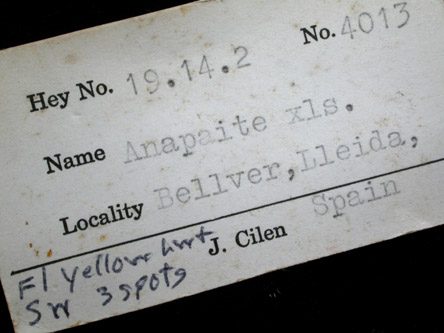 Hey No. 19.14.2 No. 4013
Name Anapaite xls.
Locality Bellver, Lleida,
Spain
J. Cilen
Fl yellow wht
SW 3 spots